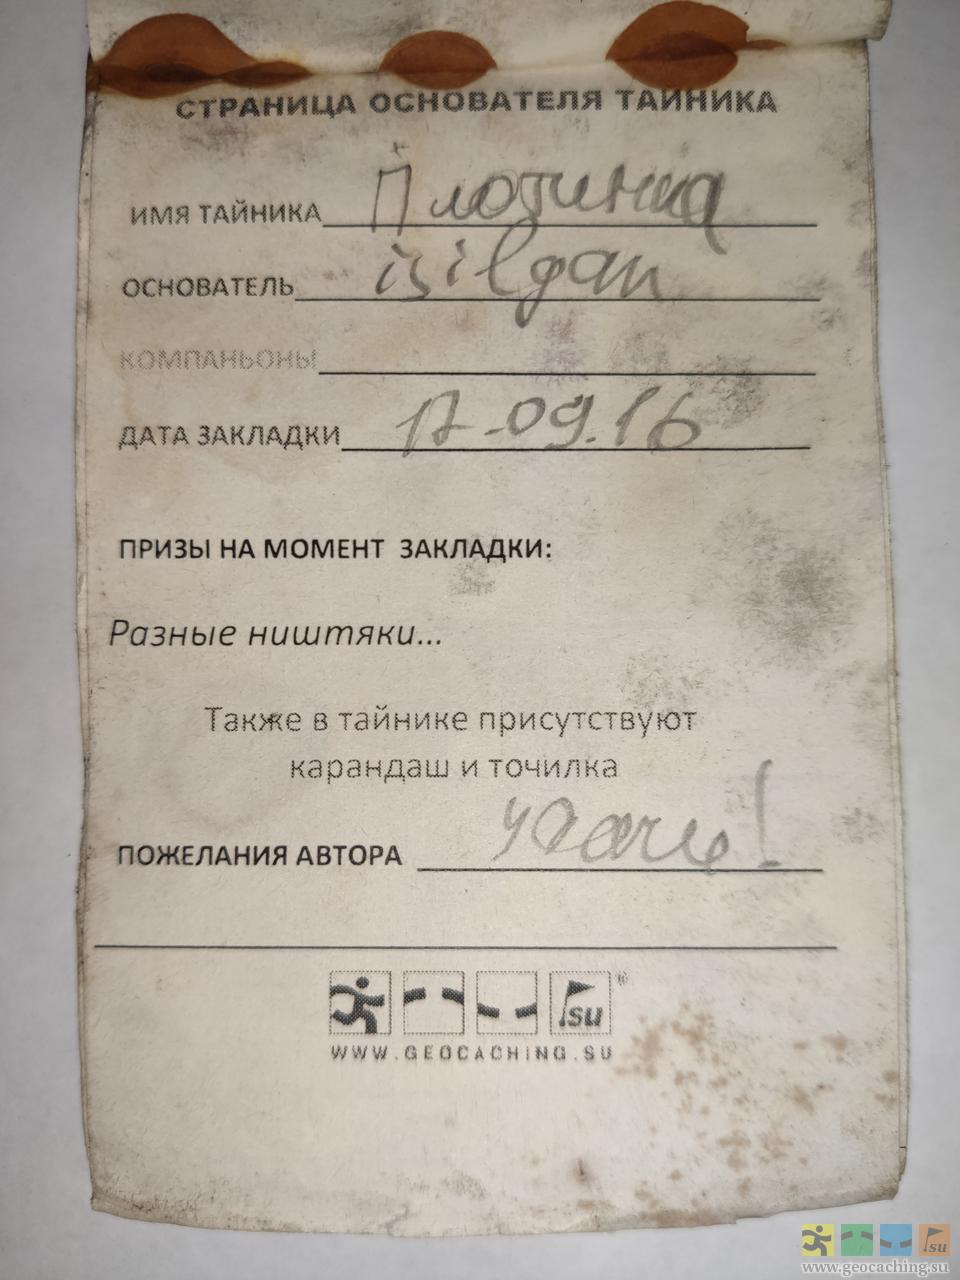 СТРАНИЦА ОСНОВАТЕЛЯ ТАЙНИКА
ИМЯ ТАЙНИКА Плотинка
ОСНОВАТЕЛЬ isilgan
КОМПАНЬОНЫ
ДАТА ЗАКЛАДКИ 17.09.16
ПРИЗЫ НА МОМЕНТ ЗАКЛАДКИ:
Разные ништяки...
Также в тайнике присутствуют
карандаш и точилка
ПОЖЕЛАНИЯ АВТОРА удачи!
.su ®
WWW.GEOCACHING.SU
.su
www.geocaching.su